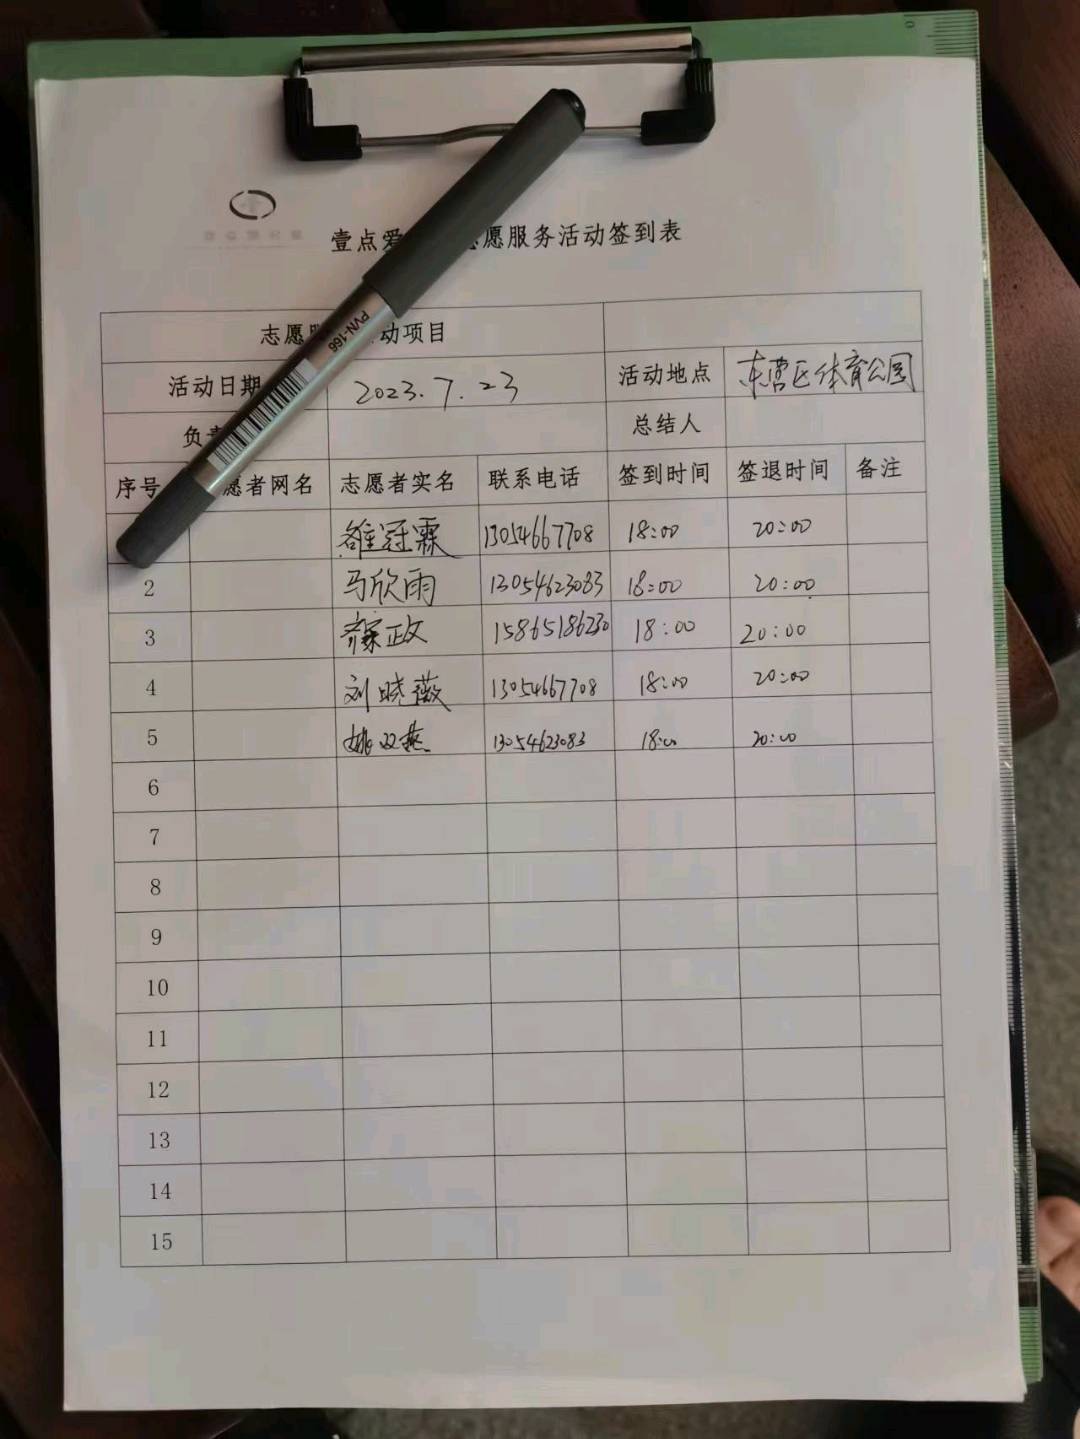 壹点爱 愿服务活动签到表
志愿 动项目
活动日期 2023.7.23 活动地点 东营区体育公园
负责 总结人
序号 愿者网名 志愿者实名 联系电话 签到时间 签退时间 备注
冠霖 13054667708 18:00 20:00
2 马欣雨 13054623083 18:00 20:00
3 政 15865186230 18:00 20:00
4 刘晓薇 13054667708 18:00 20:00
5 姚双燕 13054623083 18:00 20:00
6
7
8
9
10
11
12
13
14
15
PVN-166